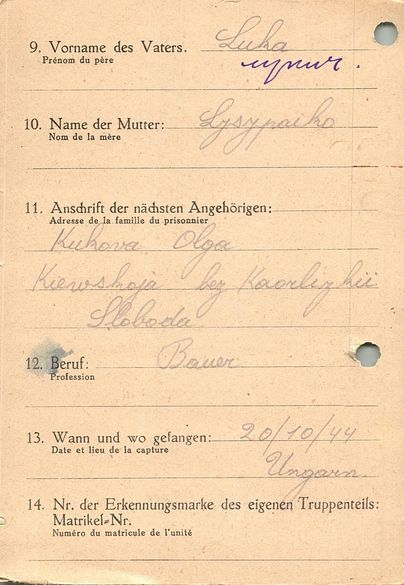 9. Vorname des Vaters. Luka
Prénom du père
10. Name der Mutter: Lysypaiko
Nom de la mère
11. Anschrift der nächsten Angehörigen:
Adresse de la famille du prisonnier
Kukova Olga
Kiewskoja bez Kaorlizkii
Sloboda
12. Beruf: Bauer
Profession
13. Wann und wo gefangen: 20/10/44
Date et lieu de la capture
Ungarn
14. Nr. der Erkennungsmarke des eigenen Truppenteils:
Matrikel=Nr.
Numéro du matricule de l'unité